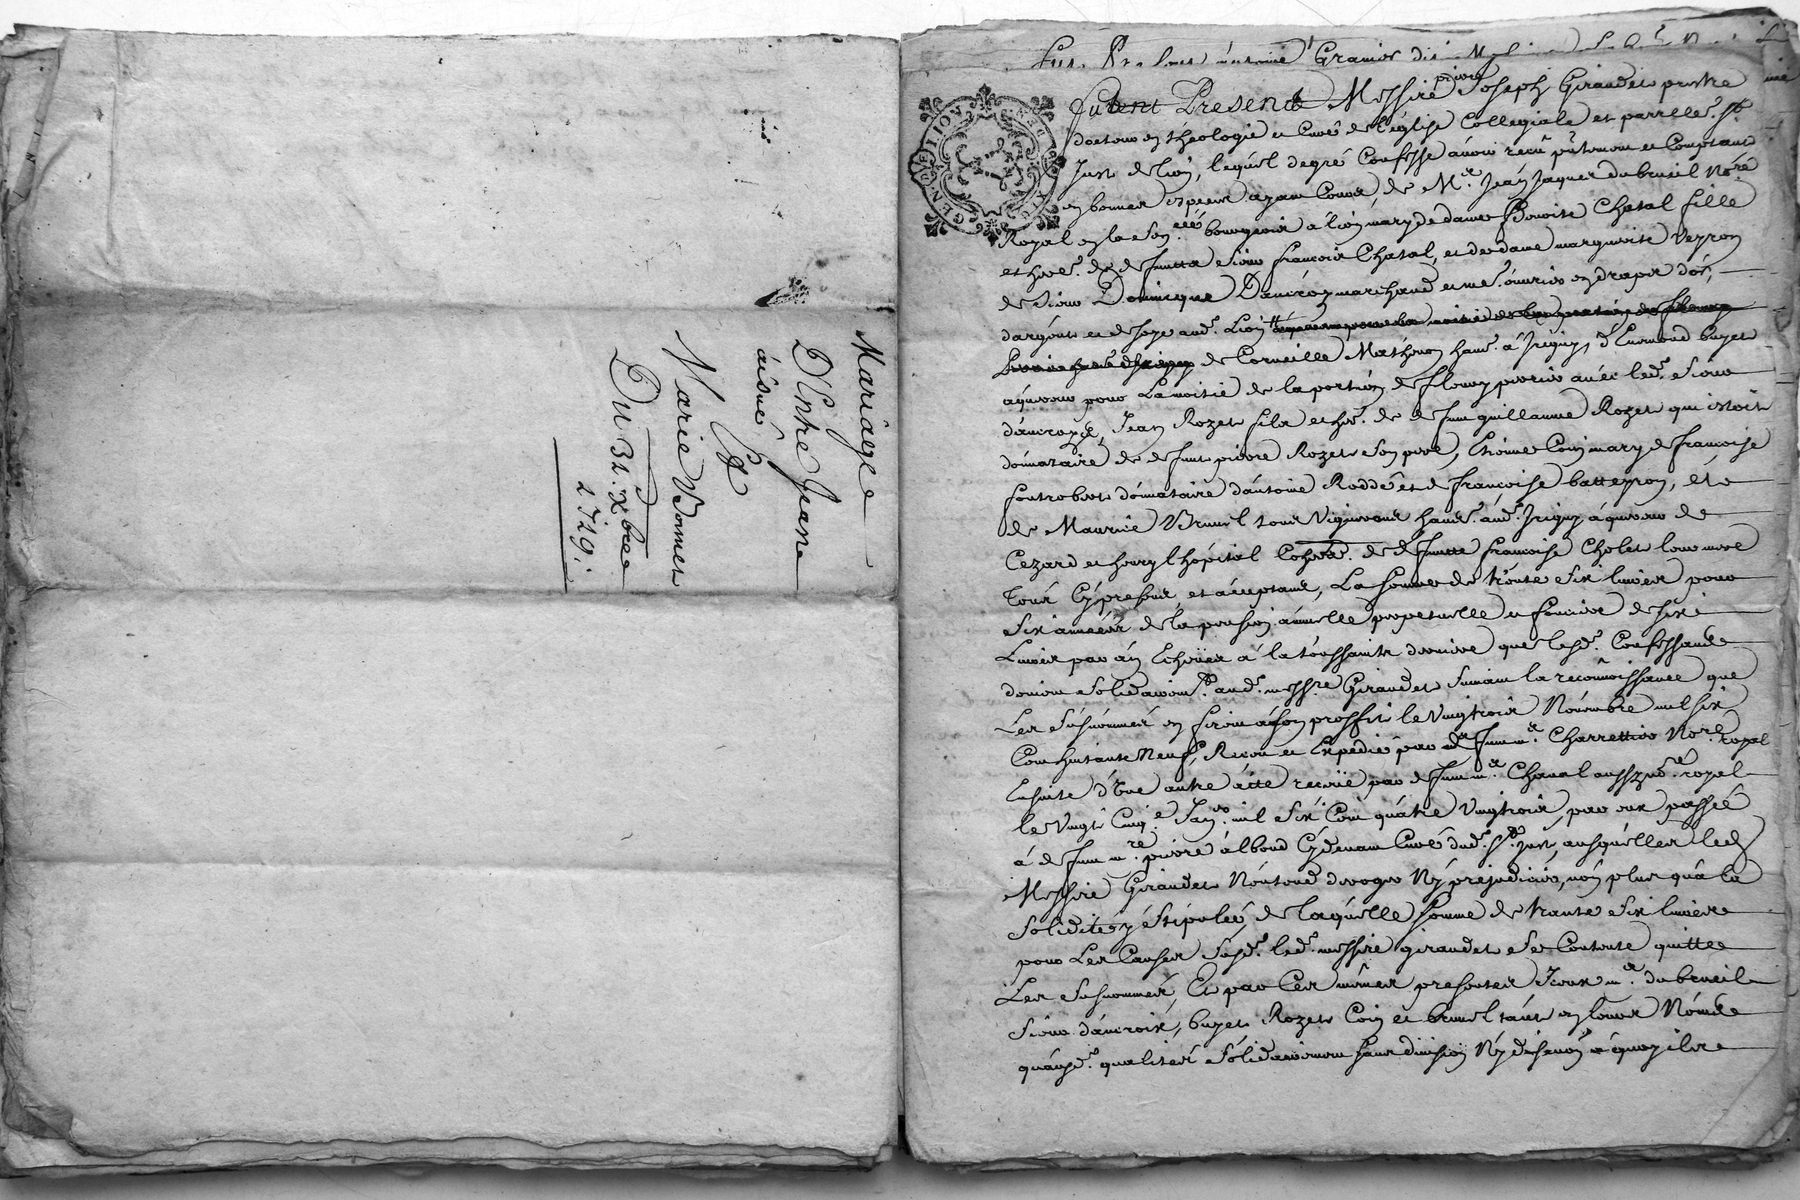 Mariâge
D'Enné Jeane
aisné Et
Marie Bonnet
Du 31. Xbre
1719.
GEN. DE LION
Granier
fut ent Present Messire pierre Joseph Giraudet prestre
docteur en théologie et Curé de l'église Collegiale et parrelle. St.
Just de Lion, lequel degré Confesse avoir reçu et Comptant
en bonnes especes ayant Cours, de Me. Jean Jaques dubreuil Nore.
Royal bourgeois à Lion mary de dame Benoite Chatal fille
et de deffunts sieur francois Chatal, et de dame marguerite Veyron
de sieur Dominique Dancroy marchand et me. ouvrier en draps d'or,
d'argent et de soye aud. Lion
de Corneille Mathon hant. à Irigny, Enemond buyet
aquereur pour La moitié de la portion de fleury perrin avec led. sieur
dancroye, Jean Rozet fils et her. de deffunt guillaume Rozet qui estoit
donnataire de deffunt pierre Rozet son pere, Etienne Coin mary de francoise
donnataire d'antoine Rodde et de francoise batteyron, et
de Maurice Brunel tous Vignerons hants. aud. Irigny aquereur de
Cezard et henry l'hôpital Coher. de deffunte francoise Cholet leur mere
Tous Cy presents et acceptants, La somme de trente six livres pour
six années de la pension annuelle perpetuelle et fonciere de six
Livres par an Echeües à la toussaints derniere que lesd. Confessants
doivent solidairemt. aud. messre Giraudet suivant la reconnoissance que
Les susnommés en firent à son proffit le Vingtrois Novembre mil six
Cent huitante Neuf, Receu et Expedié par deffunt me. Charrettier Nore. royal
Ensuite d'Une autre acte receüe par deffunt me. Chanal aussy no.re royal
le Vingt Cinqe. Janer. mil six Cent quatre Vingtrois, par eux passée
à deffunt mre pierre alboud Cydevant Curé dud. St. Just, ausquelles led.
Messire Giraudet N'entend deroger Ny prejudicier, non plus qu'à la
solidité y stipulée, de laquelle somme de trante six livres
pour Les Causes susd. led. messire giraudet se Contente quitte
Les susnommés, Et par Ces mêmes presentes Iceux me. dubreuil
sieur dancroix, buyet Rozet Coin et brunel tant en leurs Noms
qu'ausd. qualités solidairement sans division Ny discution à quoy ils